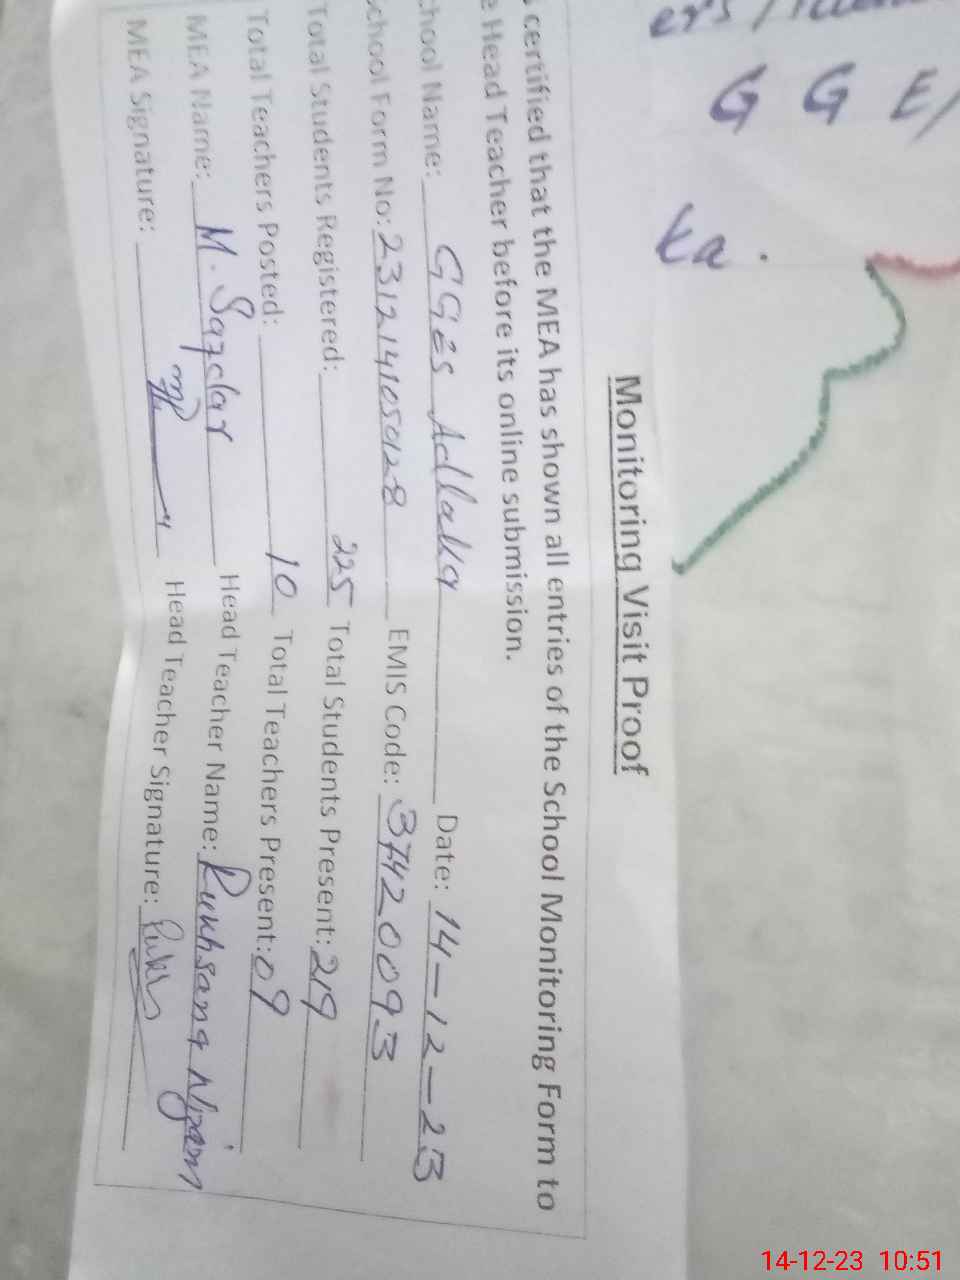 G G E/
ka.
Monitoring Visit Proof
certified that the MEA has shown all entries of the School Monitoring Form to
e Head Teacher before its online submission.
chool Name: GGES Adlaka Date: 14-12-23
School Form No: 2312141050128 EMIS Code: 37420093
Total Students Registered: 225 Total Students Present: 219
Total Teachers Posted: 10 Total Teachers Present: 09
MEA Name: M. Safdar Head Teacher Name: Rukhsana Nizam
MEA Signature: Head Teacher Signature:
14-12-23 10:51